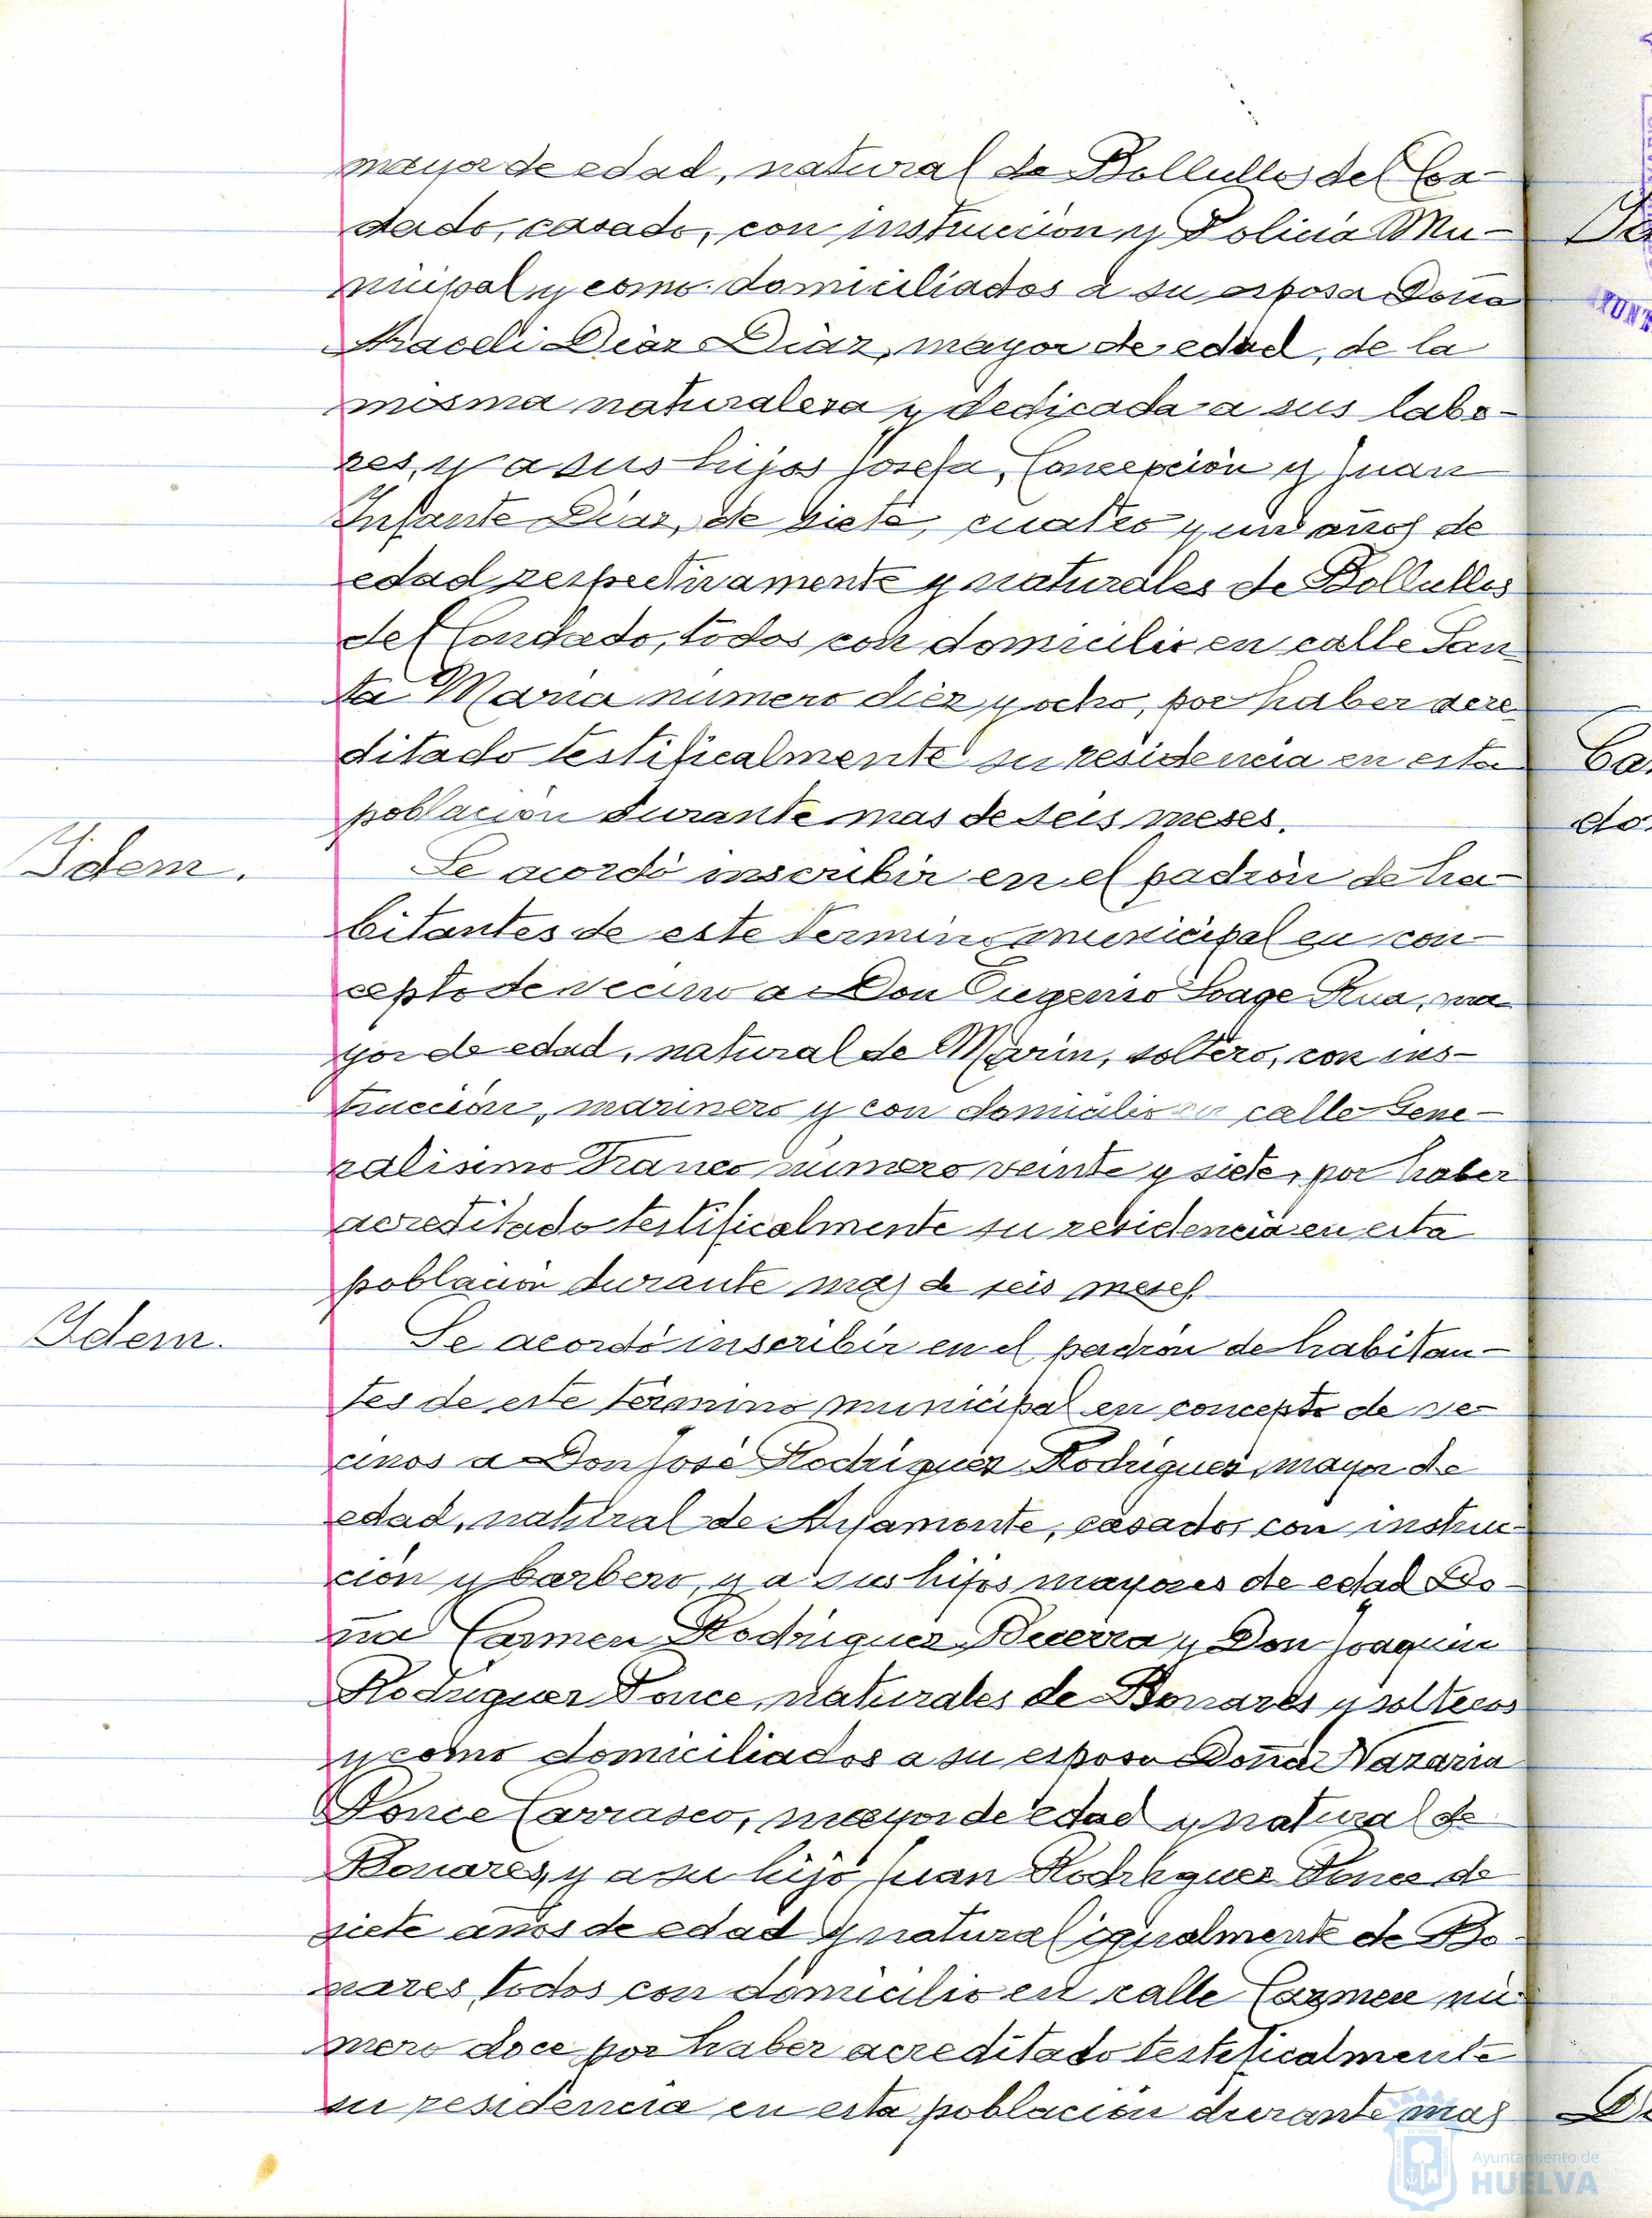 mayor de edad, natural de Bollullos del Con-
dado, casado, con instrucción y Policía Mu-
nicipal y como domiciliados a su esposa Doña
Araceli Díaz Díaz, mayor de edad, de la
misma naturaleza y dedicada a sus labo-
res, y a sus hijos Josefa, Concepción y Juan
Infante Díaz, de siete, cuatro y un años de
edad respectivamente y naturales de Bollullos
del Condado, todos con domicilio en calle San
ta María número diez y ocho, por haber acre
ditado testificalmente su residencia en esta
población durante mas de seis meses.
Idem.
Se acordó inscribir en el padrón de ha-
bitantes de este termino municipal en con-
cepto de vecino a Don Eugenio Soage Rua, ma
yor de edad, natural de Marin, soltero, con ins-
trucción, marinero y con domicilio en calle Gene-
ralisimo Franco número veinte y siete, por haber
acreditado testificalmente su residencia en esta
población durante mas de seis meses
Idem.
Se acordó inscribir en el padrón de habitan-
tes de este término municipal en concepto de ve-
cinos a Don José Rodríguez Rodríguez, mayor de
edad, natural de Ayamonte, casado, con instruc-
ción y barbero, y a sus hijos mayores de edad Do-
ña Carmen Rodríguez Becerra y Don Joaquín
Rodríguez Ponce, naturales de Bonares y solteros
y como domiciliados a su esposa Doña Nazaria
Ponce Carrasco, mayor de edad y natural de
Bonares, y a su hijo Juan Rodríguez Ponce de
siete años de edad y natural igualmente de Bo-
nares, todos con domicilio en calle Carmen nú-
mero doce por haber acreditado testificalmente
su residencia en esta población durante mas
Ayuntamiento de
HUELVA